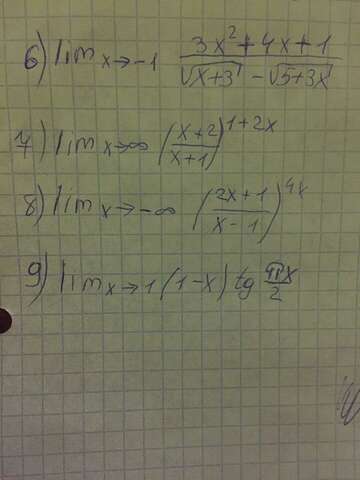 6) lim x→-1 (3x²+4x+1)/(√(x+3) - √(5+3x))
7) lim x→∞ ((x+2)/(x+1))^(1+2x)
8) lim x→-∞ ((2x+1)/(x-1))^(4x)
9) lim x→1 (1-x) tg πx/2